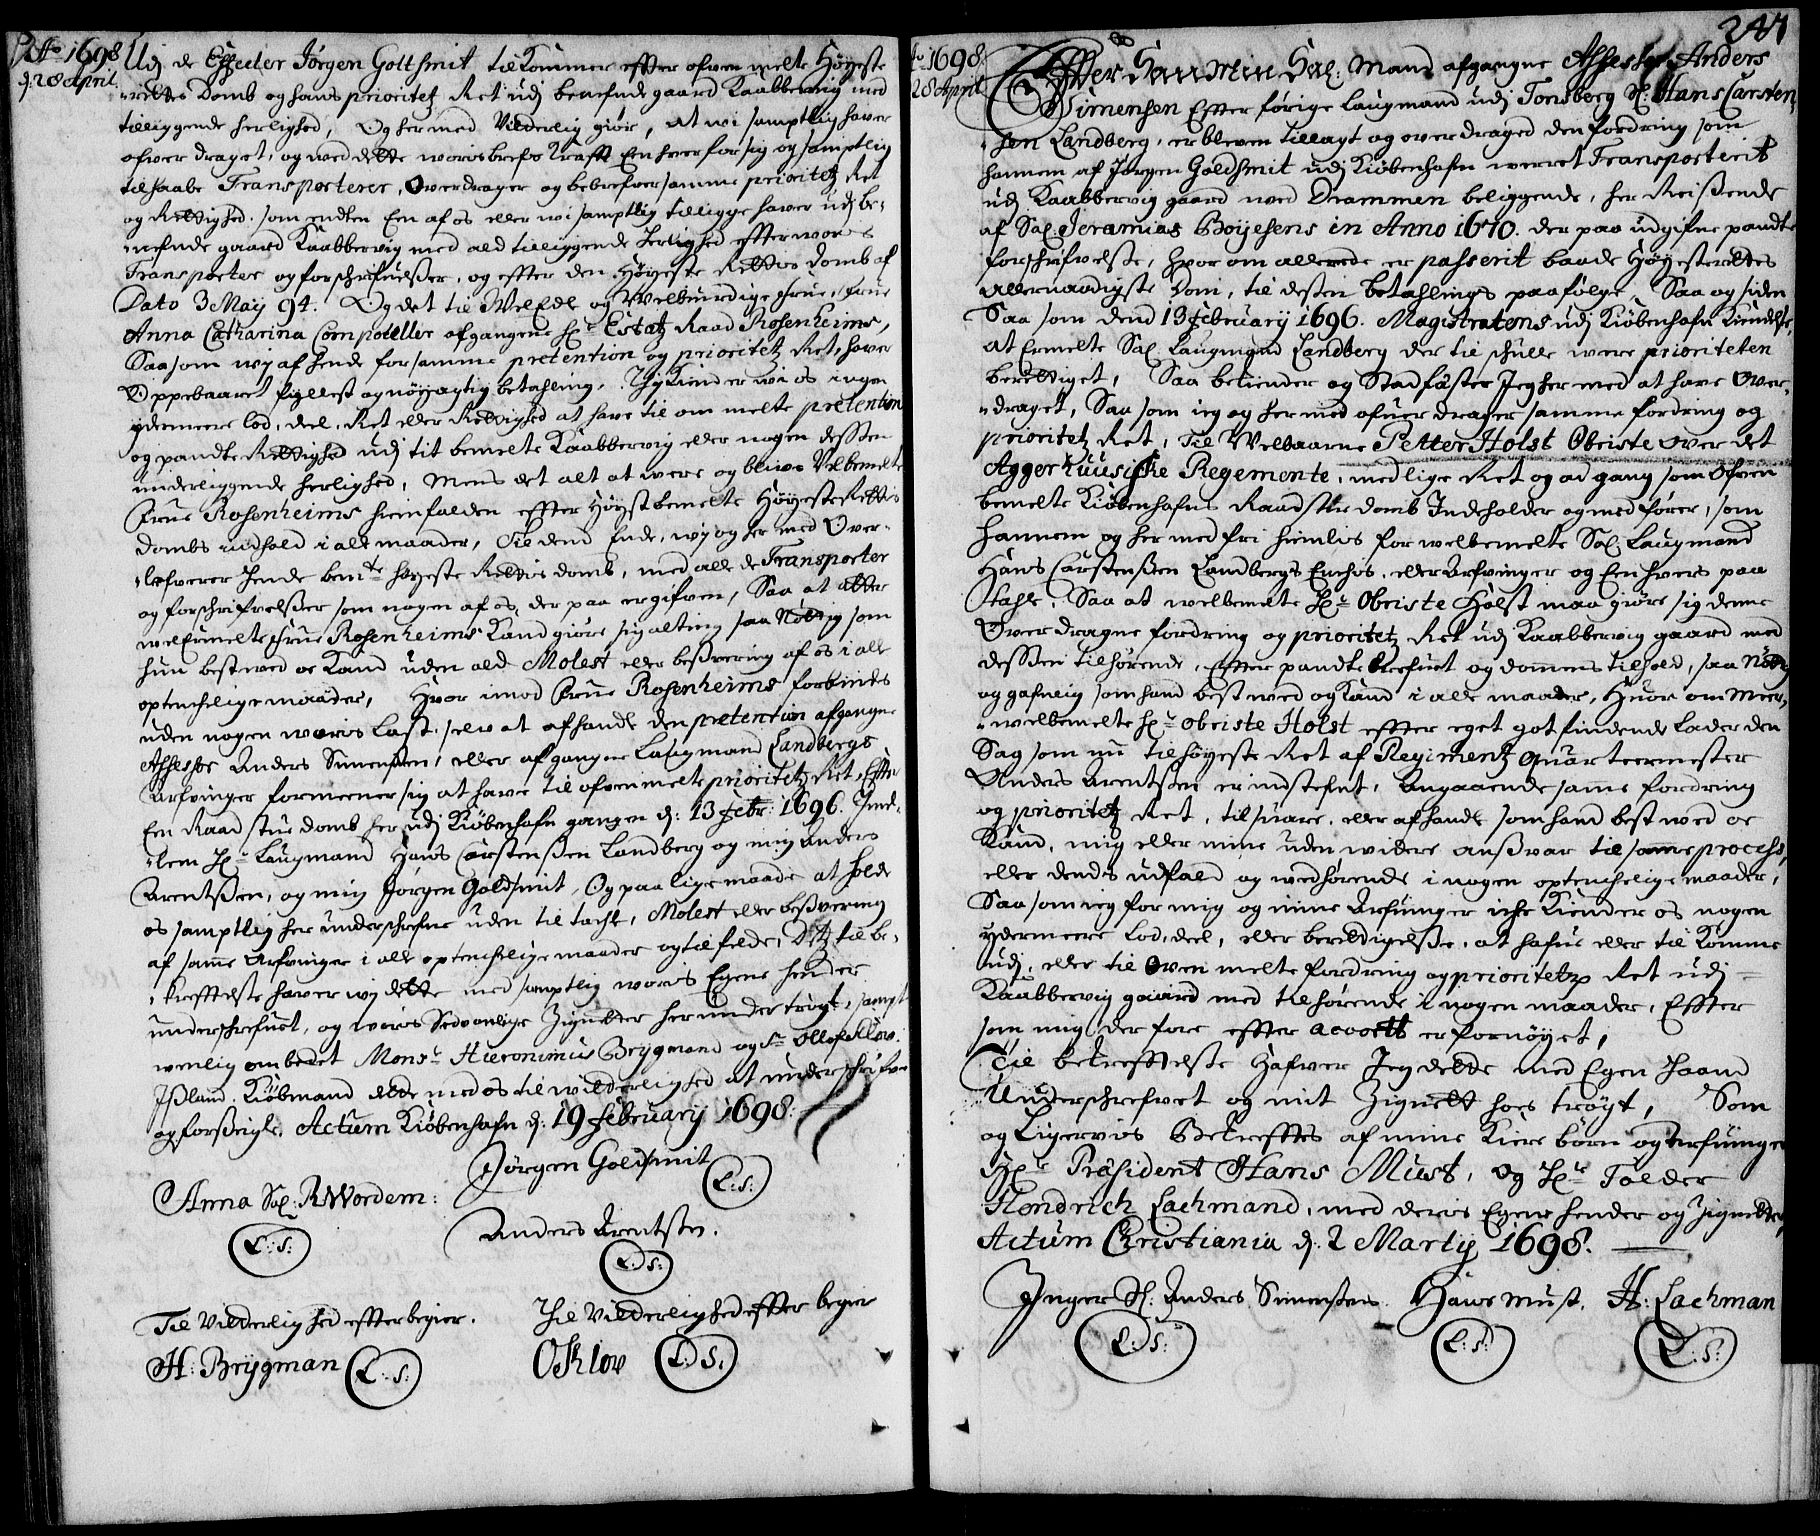 Ao 1698
d: 28 April.
Udj de Effecter Jörgen Goltsmit tilkommer effter ofvenmelte Höyeste
rettes Domb og hans prioritetz Ret udj benefnde gaard Kaabbervig med
tilliggende herlighed, Og hermed Vitterlig giör, at wi samptlig hafver
ofverdraget, og med dette woris brefs krafft Een hver for sig og samptlig
tilhaabe Transporterer, Overdrager og bebrefver samme prioritetz Ret
og Rettighed, som endten Een af os eller wi samptlig tilligge hafver udj be-
nefnde gaard Kaabbervig med ald tilliggende Herlighed effter woris
Transporter og forschrifvelsser, og effter den Höyeste Rettis Domb af
Dato 3 Maij 94. Og det til WelEdl og Welbiurdige Frue, Frue
Anna Catharina Compoteller afgangene Hr Estatz Raad Rosenheims,
Saasom wij af hende for samme pretention og prioritetz Ret, hafver
Oppebaaret fyllest og nöyagtig betahling. Thj kiender wi os ingen
ydermeere lod, deel, Ret eller Rettighed at hafve til ommelte pretention
og pandte Rettighed udj tit bemelte Kaabbervig eller nogen dessen
underliggende herlighed, Mens det alt at were og blive Velbemelte
Frue Rosenheims hiemfalden effter Höystbemelte Höyeste Rettis
Dombs indhold i alle maader, Til dend Ende, wij og her med Over-
lefverer Hende bemte höyeste Rettis domb, med alle de Transporter
og forschrifvelsser som nogen af os der paa er gifven, Saa at Etter
welermelte Frue Rosenheims kand giöre sig alting saa Nöttig som
hun best weed oc kand uden ald Molest eller besswering af os i alle
optenchelige maader, Hvor imod Frue Rosenheims forbindes
uden nogen woris last, selv at afhandle den pretention afgangne
Assessor Anders Simensen, eller afgangne Laugmand Landbergs
Arfvinger formeener sig at hafve til ofvenmelte prioritetz Ret, Effter
Een Raadstue domb her udj Kiöbenhafn gangen d: 13 Febr: 1696. Imel-
lem Hr Laugmand Hans Carstenssen Landberg og mig Anders
Arentssen, og mig Jörgen Goldsmit, Og paa lige maade at holde
os samptlig her underschrefne uden til tacht, Molest eller besswering
af samme Arfvinger i alle optenchelige maader og tilfelde, Dets til be-
krefftelse hafver wij dette med samptlig woris Egene hender
underschrefvet, og woris Sedvonlige Zignetter herunder trögt, sampt
wenlig ombedet Monsr Hieronimus Brijgmand og Sr
Jssland. Kiöbmand dette med os til witterlighed at underschrifve
og forseigle. Actum Kiöbenhafn d: 19 Februarij 1698.
Jörgen Goldsmit
Anna Sal: R Wordem:
L:S:
L:S:
Anders Arentssen.
L:S:
Til Vitterlighed effter begier.
Til Vitterlighed effter begier
H: Brijgman
L:S:
L:S:
247
Ao 1698
28 April
Effter Som Min Sal: Mand afgangne Assessor Anders
Simensen Effter forige Laugmand udj Tonsberg Sl: Hans Carsten-
sen Landberg, er bleven tillagt og overdraged den fordring som
hannem af Jörgen Goldsmit udj Kiöbenhafn werret Transporterit
udj Kaabbervig gaard wed Drammen beliggende, her Reissende
af Sal. Jeramias Boijesens in Anno 1670. der paa udgifne pandte
forschrifvelsse, hvor om allerede er passerit baade Höyesterettes
allernaadigste Dom, til dessen betahlings paafölge, Saa og siden
Saasom dend 13 Februarij 1696. Magistratens udj Kiöbenhafn Kiendelse,
at Ermelte Sal Laugmand Landberg der til schulle were prioriteten
berettiget, Saa bekiender og Stadfæster Jeg her med at hafve Over-
draget, Saa som ieg og her med ofver drager samme fordring og
prioritetz Ret, Til Welbaarne Petter Holst Obriste over det
Aggerhuusiske Regemente, med lige Ret og adgang som Ofven
bemelte Kiöbenhafns Raadstue domb Indeholder og medförer, som
Hannem og her med fri hiemles for welbemelte Sal. Laugmand
Hans Carstenssen Landbergs Enches, eller Arfvinger og Een hvers paa
tahle. Saa at welbemelte Hr Obriste Holst maa giöre sig denne
Overdragne fordring og prioritetz Ret udj Kaabbervig gaard med
dessen tilhörende, Effter pandte brefvet og domens tilhold, saa nöttig
og gafnlig som hand best weed og kand i alle maader, Hvor om Meer-
welbemelte Hr obriste Holst effter eget gotfindende lader den
Sag som nu til höyeste Ret af Regimentz quarteermester
Anders Arentssen er indstefnt, Angaaende samme fordring
og prioritetz Ret, tilsware, eller afhandle som hand best weed oc
Kand, mig eller mine uden widere answar til samme process,
eller dends udfald og wedhörende i nogen optenchelige maader,
Saasom ieg for mig og mine Arfvinger iche kiender os nogen
ydermeere Lod, deel, eller berettigelse, at hafve eller til komme
udj, eller til Ovenmelte fordring og prioritetz Ret udj
Kaabbervig gaard med tilhörende i nogen maader, Effter
som mig der fore effter accortt er fornöyet,
Til bekrefftelse Hafver Jeg dette med Egen Haand
Underschrefvet og mit Zignett hoes tröyt, Som
og Ligerviis Bekrefftes af mine kiere börn og Arfvinger
Hr Præsident Hans Must, og Hr Tolder
Hendrich Lachmand, med deris Egene hender og Zignetter,
Actum Christiania d: 2 Martij 1698.
Inger Sl. Anders Simensens.
Hans Must.
H: Lachman
L:S:
L:S:
L:S: